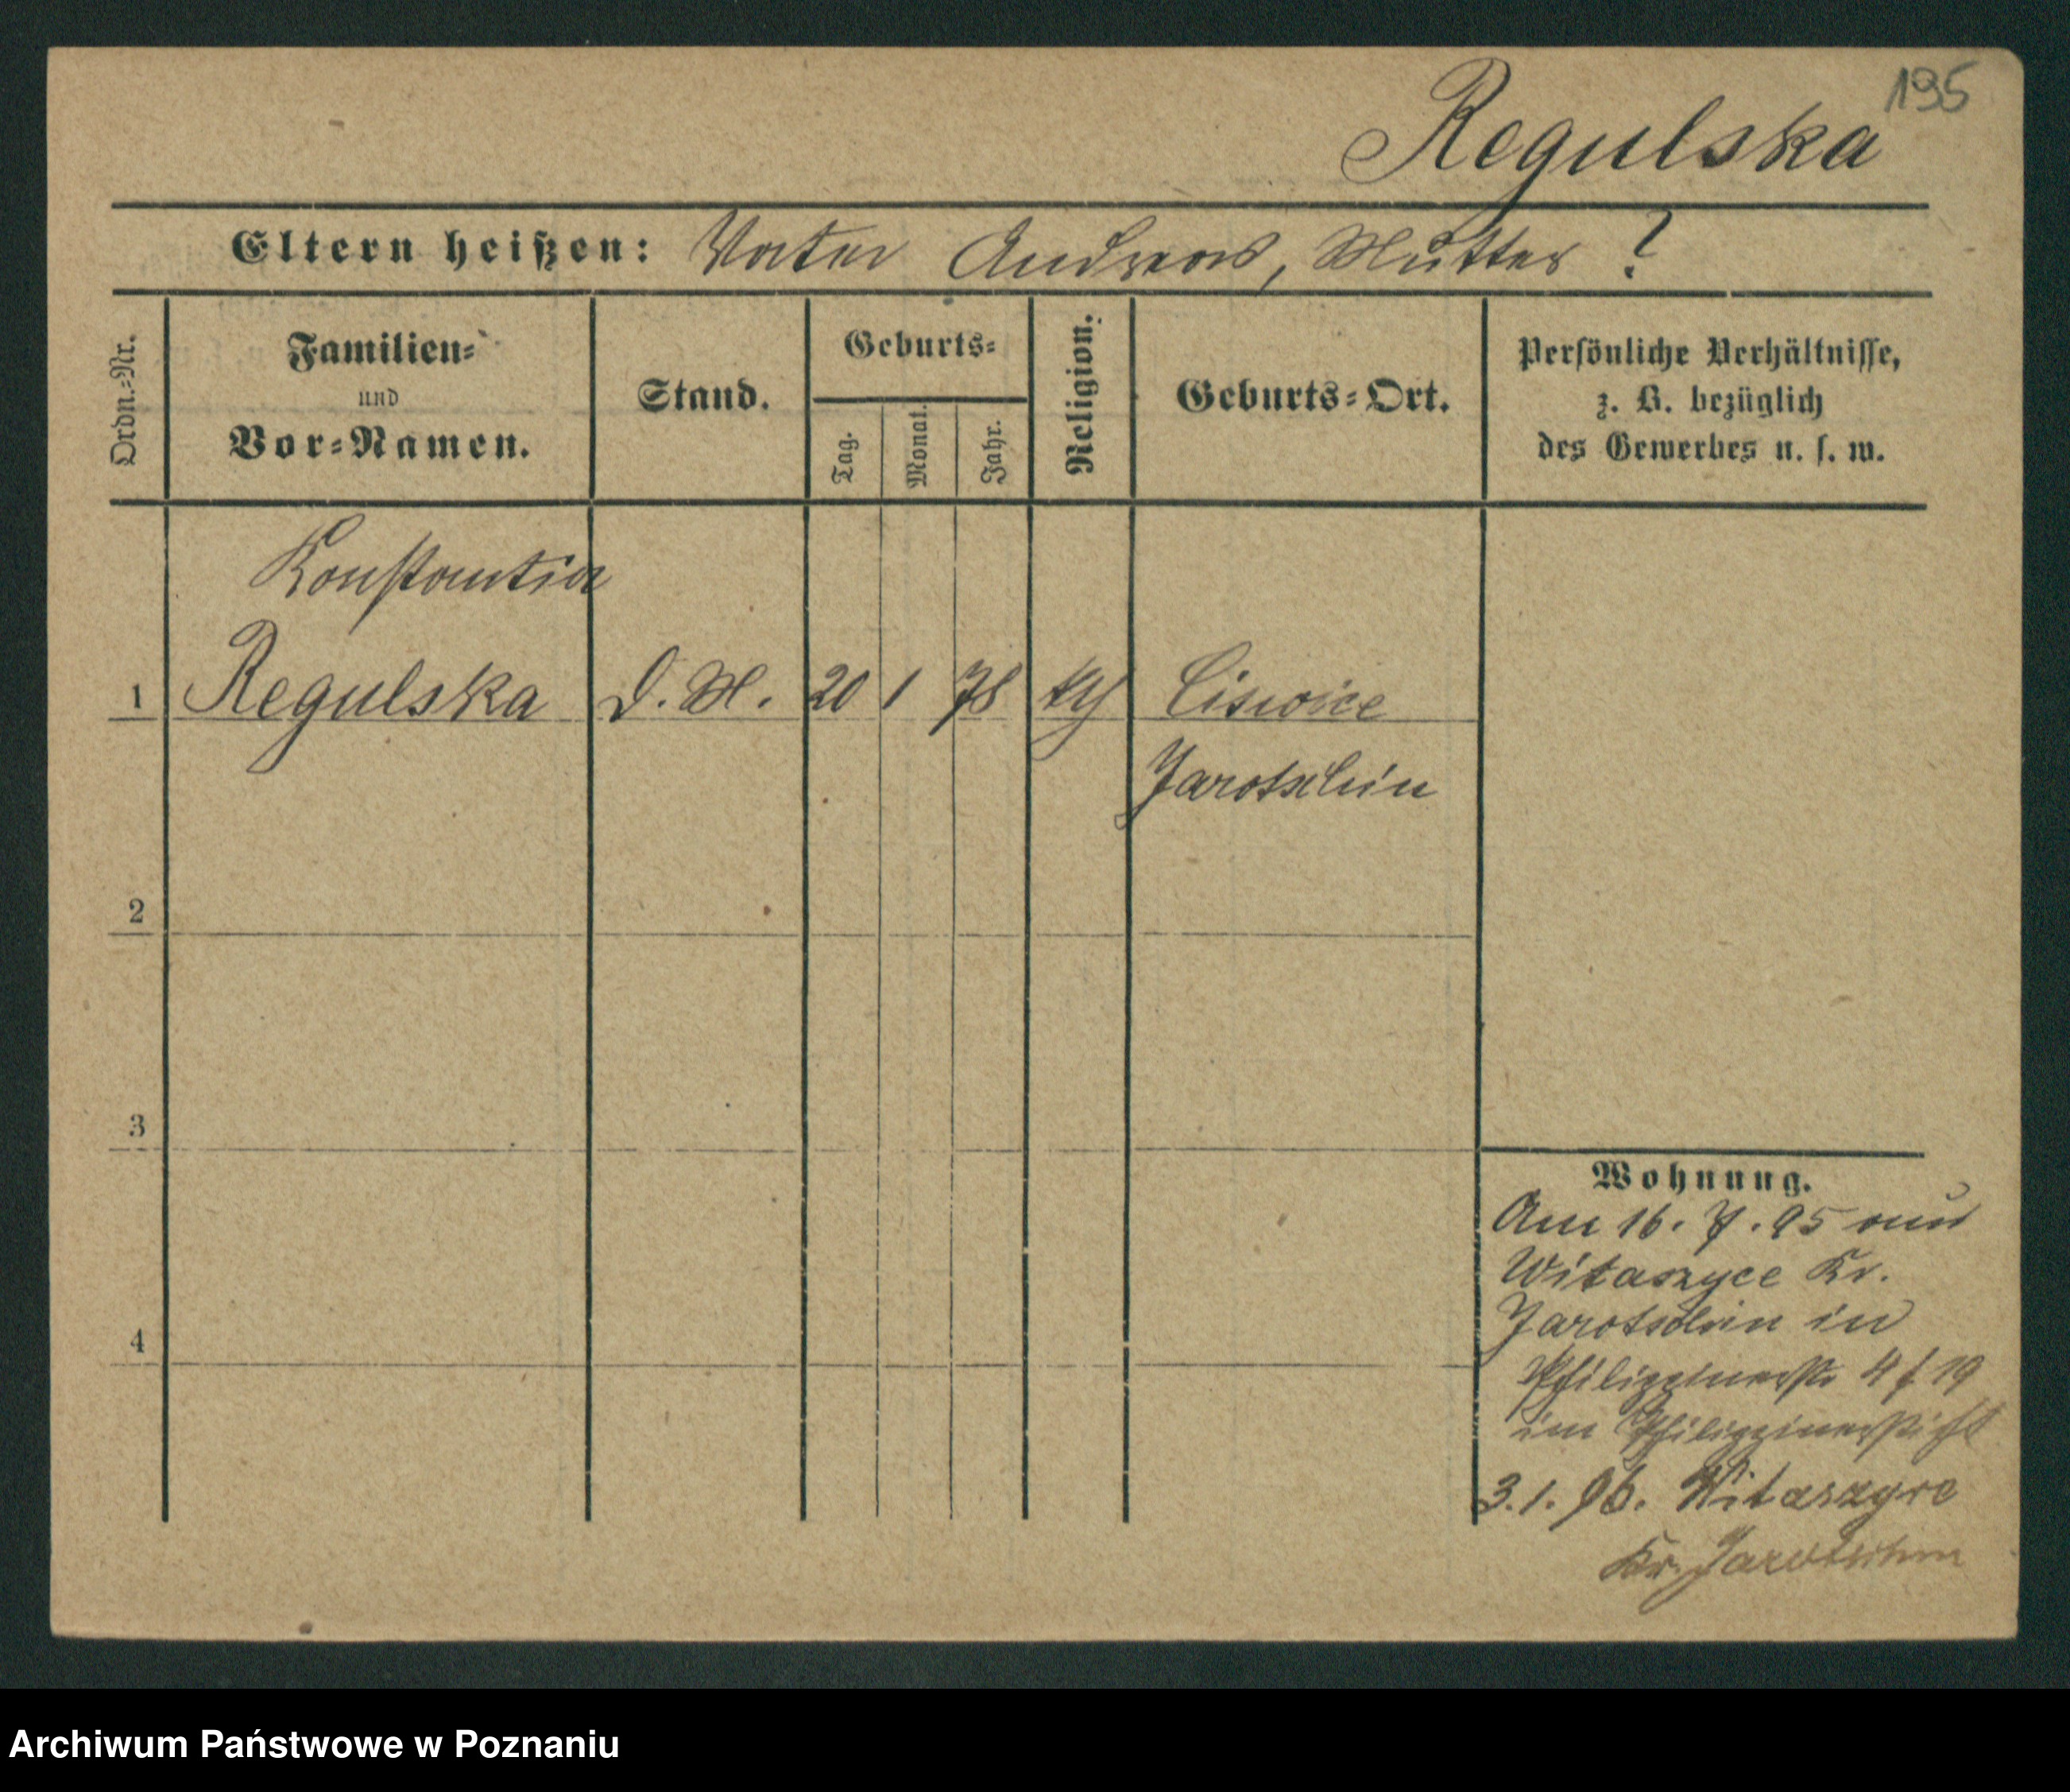 195
Regulska
Eltern heißen: Vater Andreas, Mutter ?
Ordn.=Nr.
Familien=
und
Vor=Namen.
Stand.
Geburts=
Tag.
Monat.
Jahr.
Religion.
Geburts=Ort.
Persönliche Verhältnisse,
z. B. bezüglich
des Gewerbes u. s. w.
Konstantia
1 Regulska D. M. 20 1 78 kth Ciswice
Jarotschin
2
3
4
Wohnung.
Am 16. 7. 95 aus
Witaszyce Kr.
Jarotschin in
Philippinerstr 4 f 19
im Philippinerstift
3.1.96. Witaszyce
Kr. Jarotschin
Archiwum Państwowe w Poznaniu